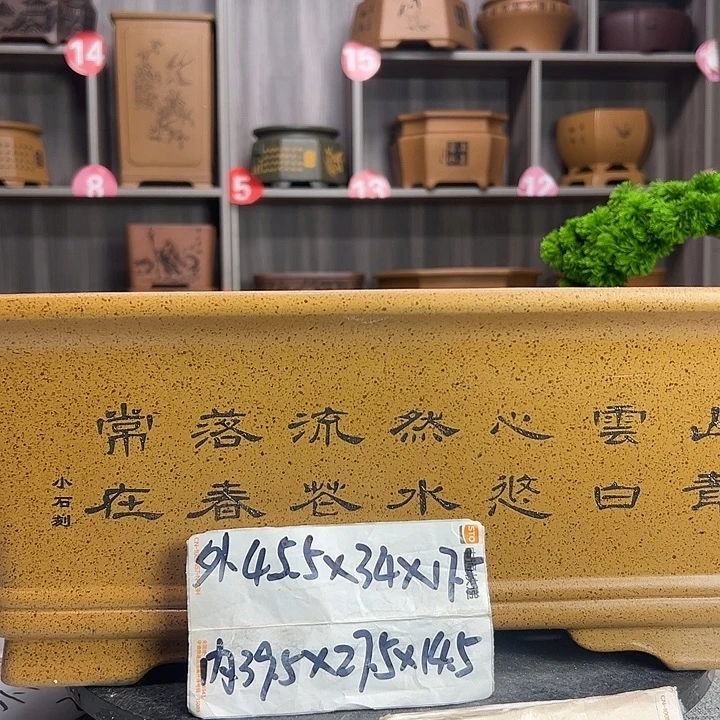 14
15
8
5
13
12
山青
雲白
心悠
然水
流花
落春
常在
小石刻
STO
外45.5×34×17.5
内39.5×27.5×14.5